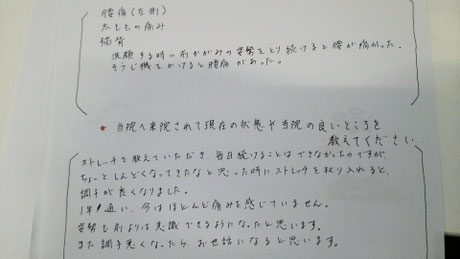 腰痛（左側）
太ももの痛み
猫背
洗顔する時に前かがみの姿勢をとり続けると腰が痛かった。
そうじ機をかけると腰痛があった。
★ 当院へ来院されて現在の状態や当院の良いところを
教えてください。
ストレッチを教えていただき、毎日続けることはできなかったのですが、
ちょっとしんどくなってきたなと思った時にストレッチを取り入れると、
調子が良くなりました。
1年通い、今はほとんど痛みを感じていません。
姿勢も前よりは意識できるようになったと思います。
また調子悪くなったら、お世話になると思います。